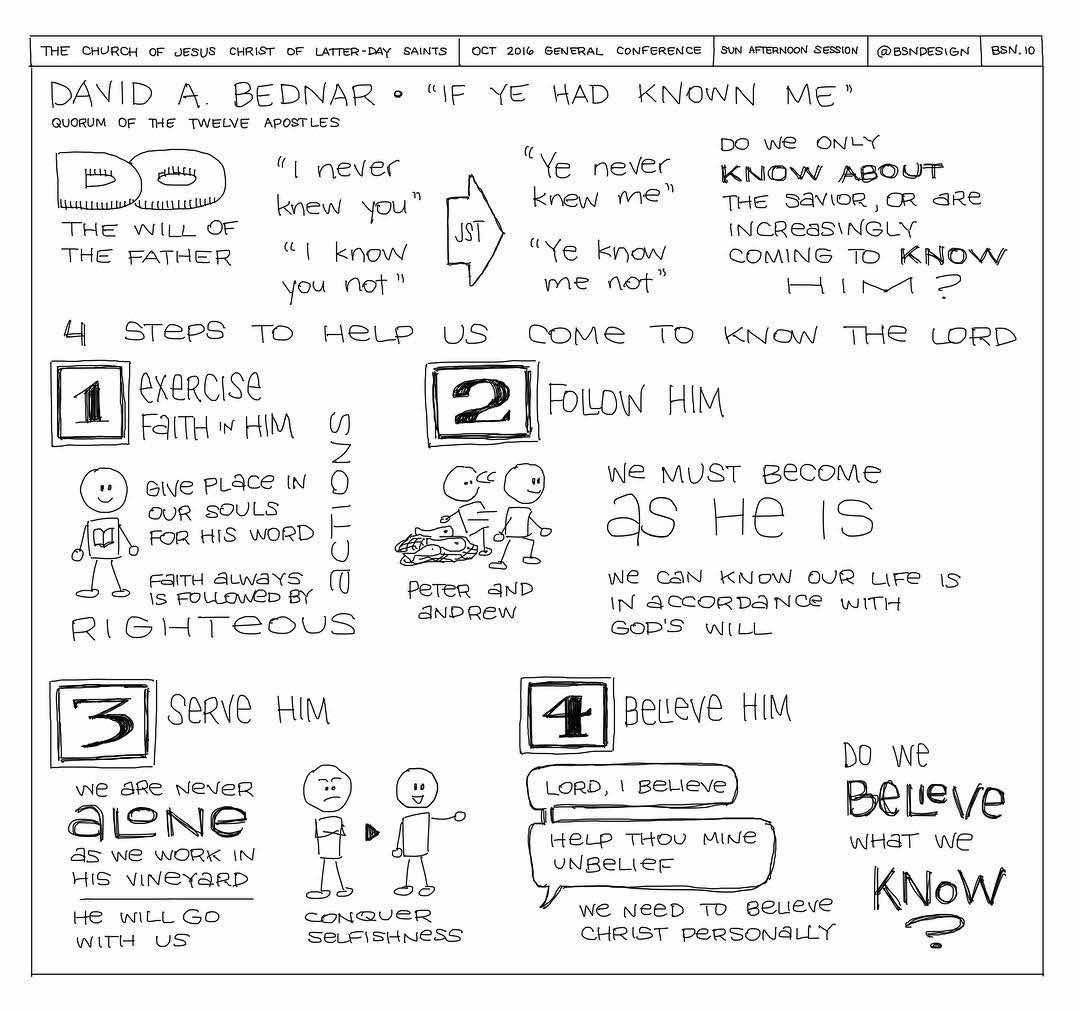 THE CHURCH OF JESUS CHRIST OF LATTER-DAY SAINTS
OCT 2016 GENERAL CONFERENCE
SUN AFTERNOON SESSION
@BSNDESIGN
BSN.10
DAVID A. BEDNAR • "IF YE HAD KNOWN ME"
QUORUM OF THE TWELVE APOSTLES
DO
THE WILL OF
THE FATHER
"I never
knew you"
"I know
you not"
JST
"Ye never
knew me"
"Ye know
me not"
DO WE ONLY
KNOW ABOUT
THE SAVIOR, OR ARE
INCREASINGLY
COMING TO KNOW
HIM?
4 STEPS TO HELP US COME TO KNOW THE LORD
1
EXERCISE
FAITH IN HIM
GIVE PLACE IN
OUR SOULS
FOR HIS WORD
FAITH ALWAYS
IS FOLLOWED BY
RIGHTEOUS
ACTIONS
2
FOLLOW HIM
PETER AND
ANDREW
WE MUST BECOME
AS HE IS
WE CAN KNOW OUR LIFE IS
IN ACCORDANCE WITH
GOD'S WILL
3
SERVE HIM
WE ARE NEVER
ALONE
AS WE WORK IN
HIS VINEYARD
HE WILL GO
WITH US
CONQUER
SELFISHNESS
4
BELIEVE HIM
LORD, I BELIEVE
HELP THOU MINE
UNBELIEF
WE NEED TO BELIEVE
CHRIST PERSONALLY
DO WE
BELIEVE
WHAT WE
KNOW
?